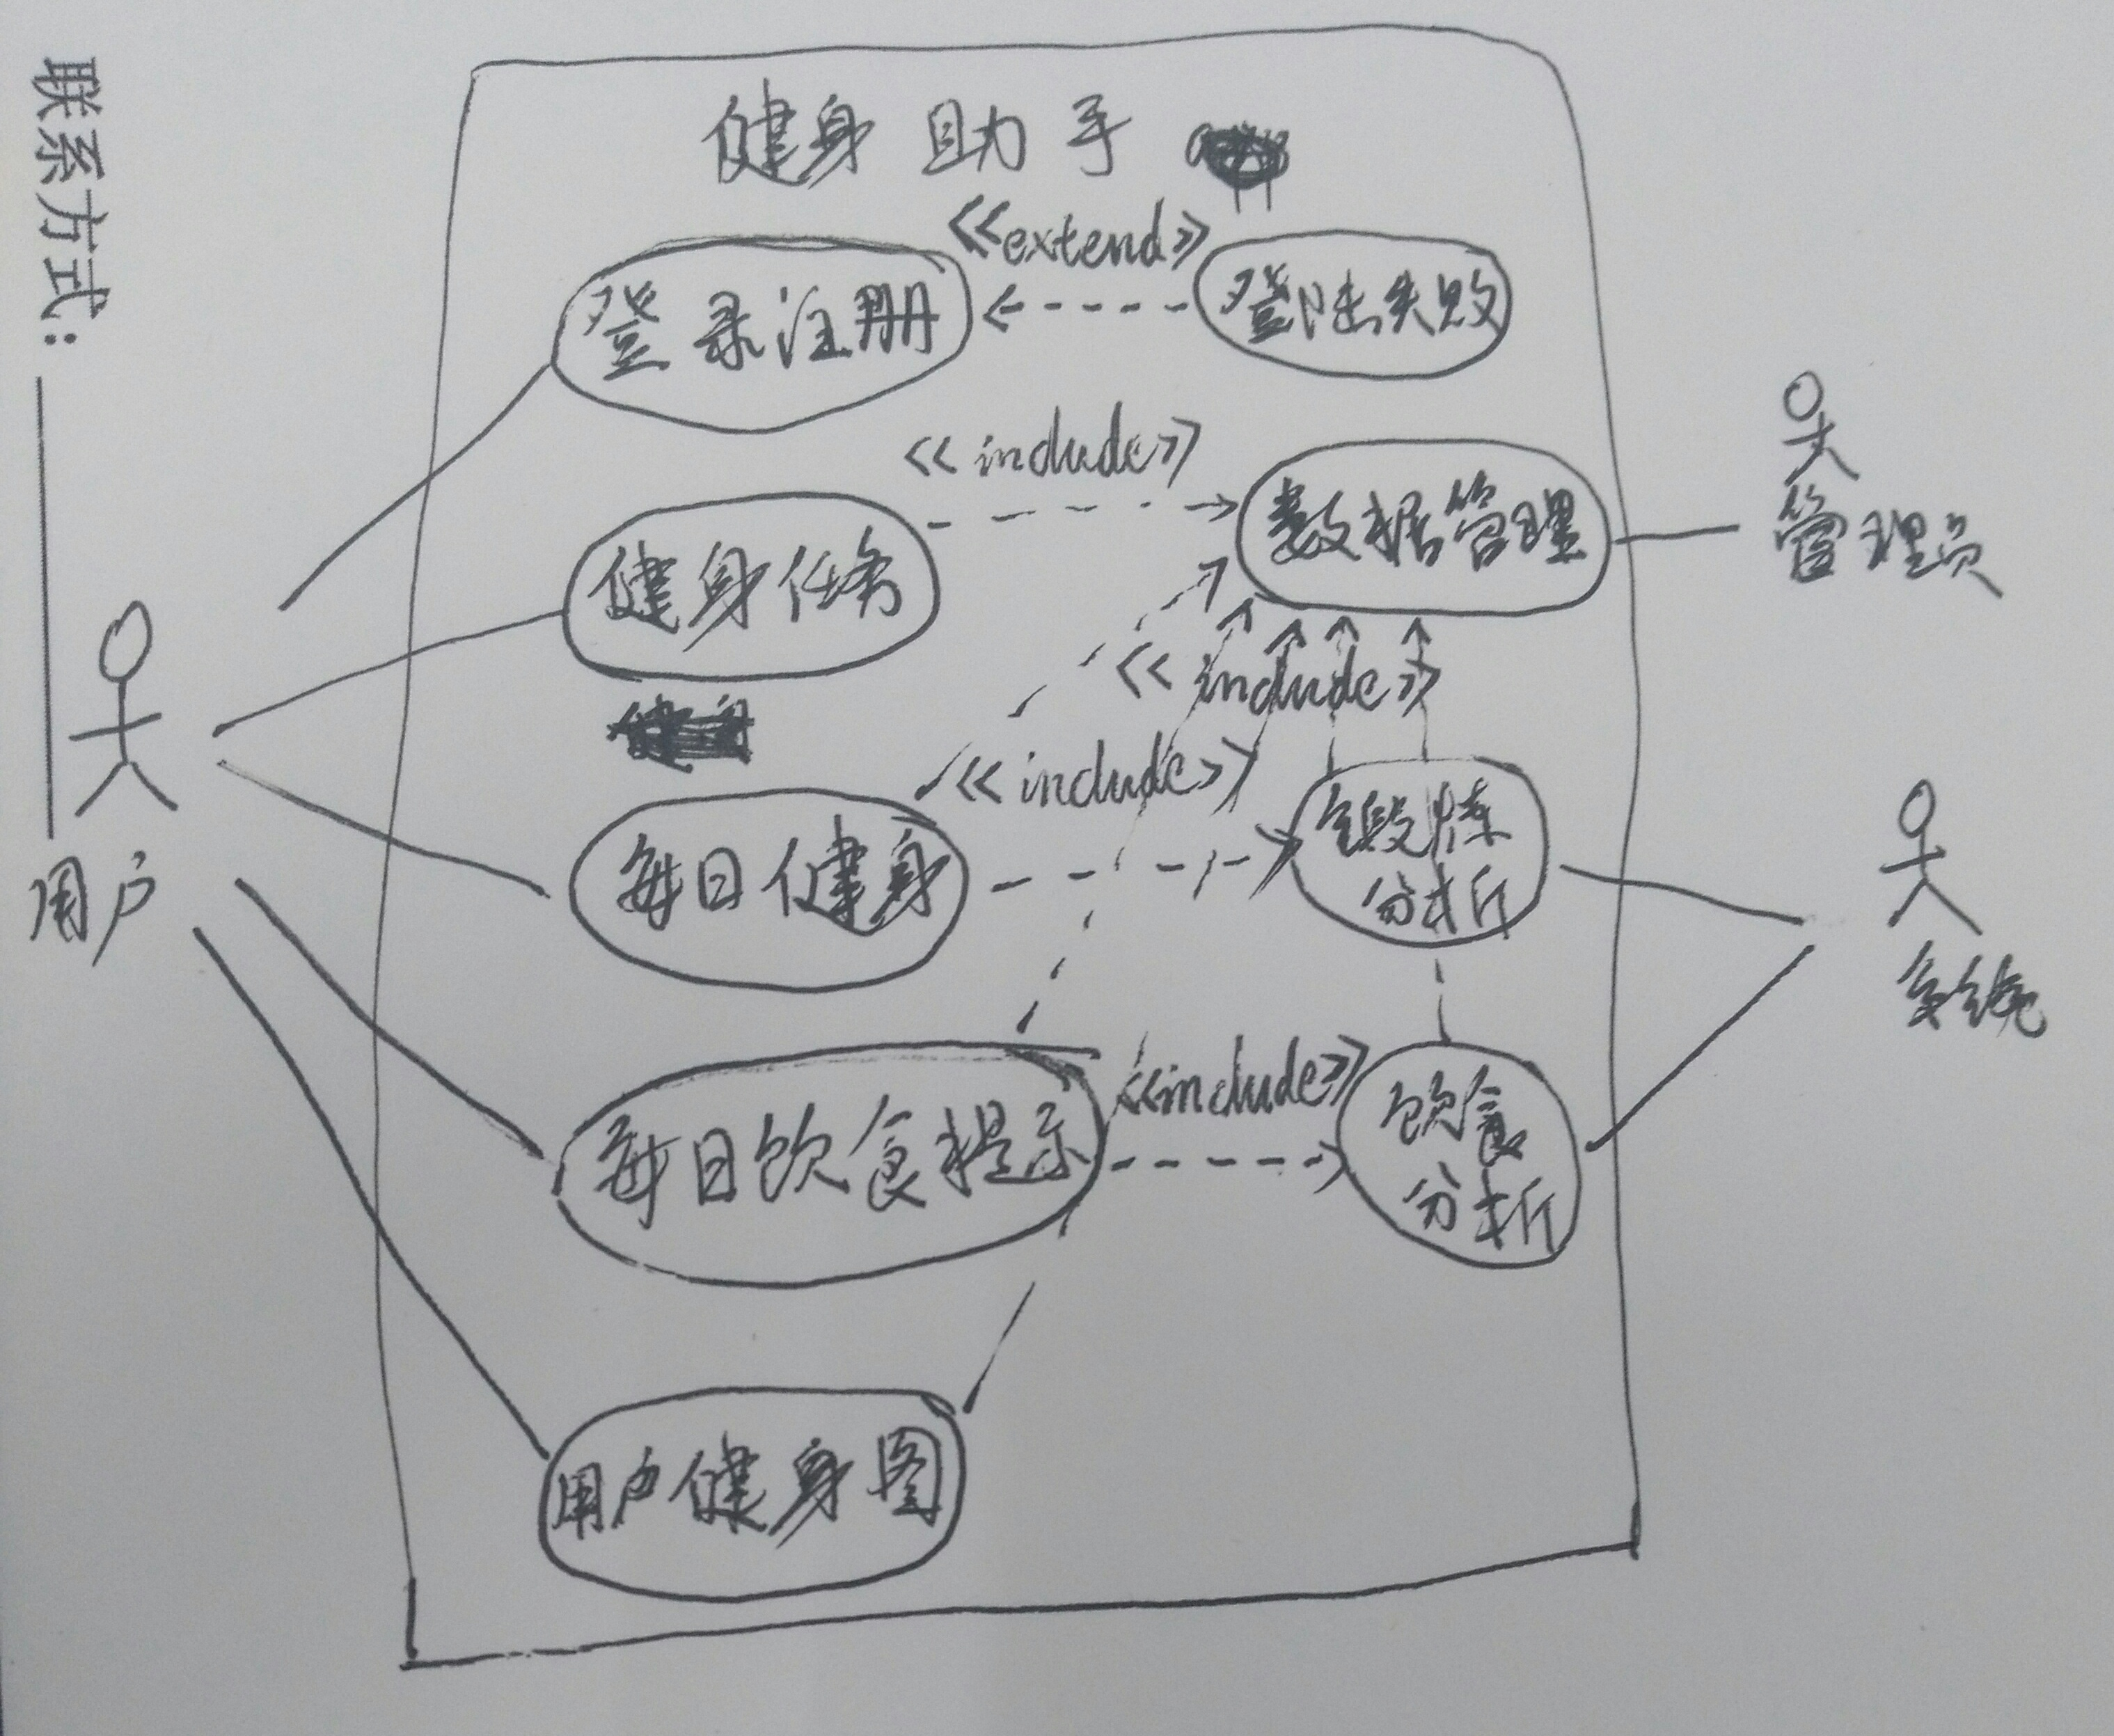 联系方式:
健身助手
<<extend>>
登录注册
登陆失败
<<include>>
数据管理
管理员
健身任务
<<include>>
<<include>>
每日健身
锻炼
分析
用户
系统
<<include>>
每日饮食提示
饮食
分析
用户健身图